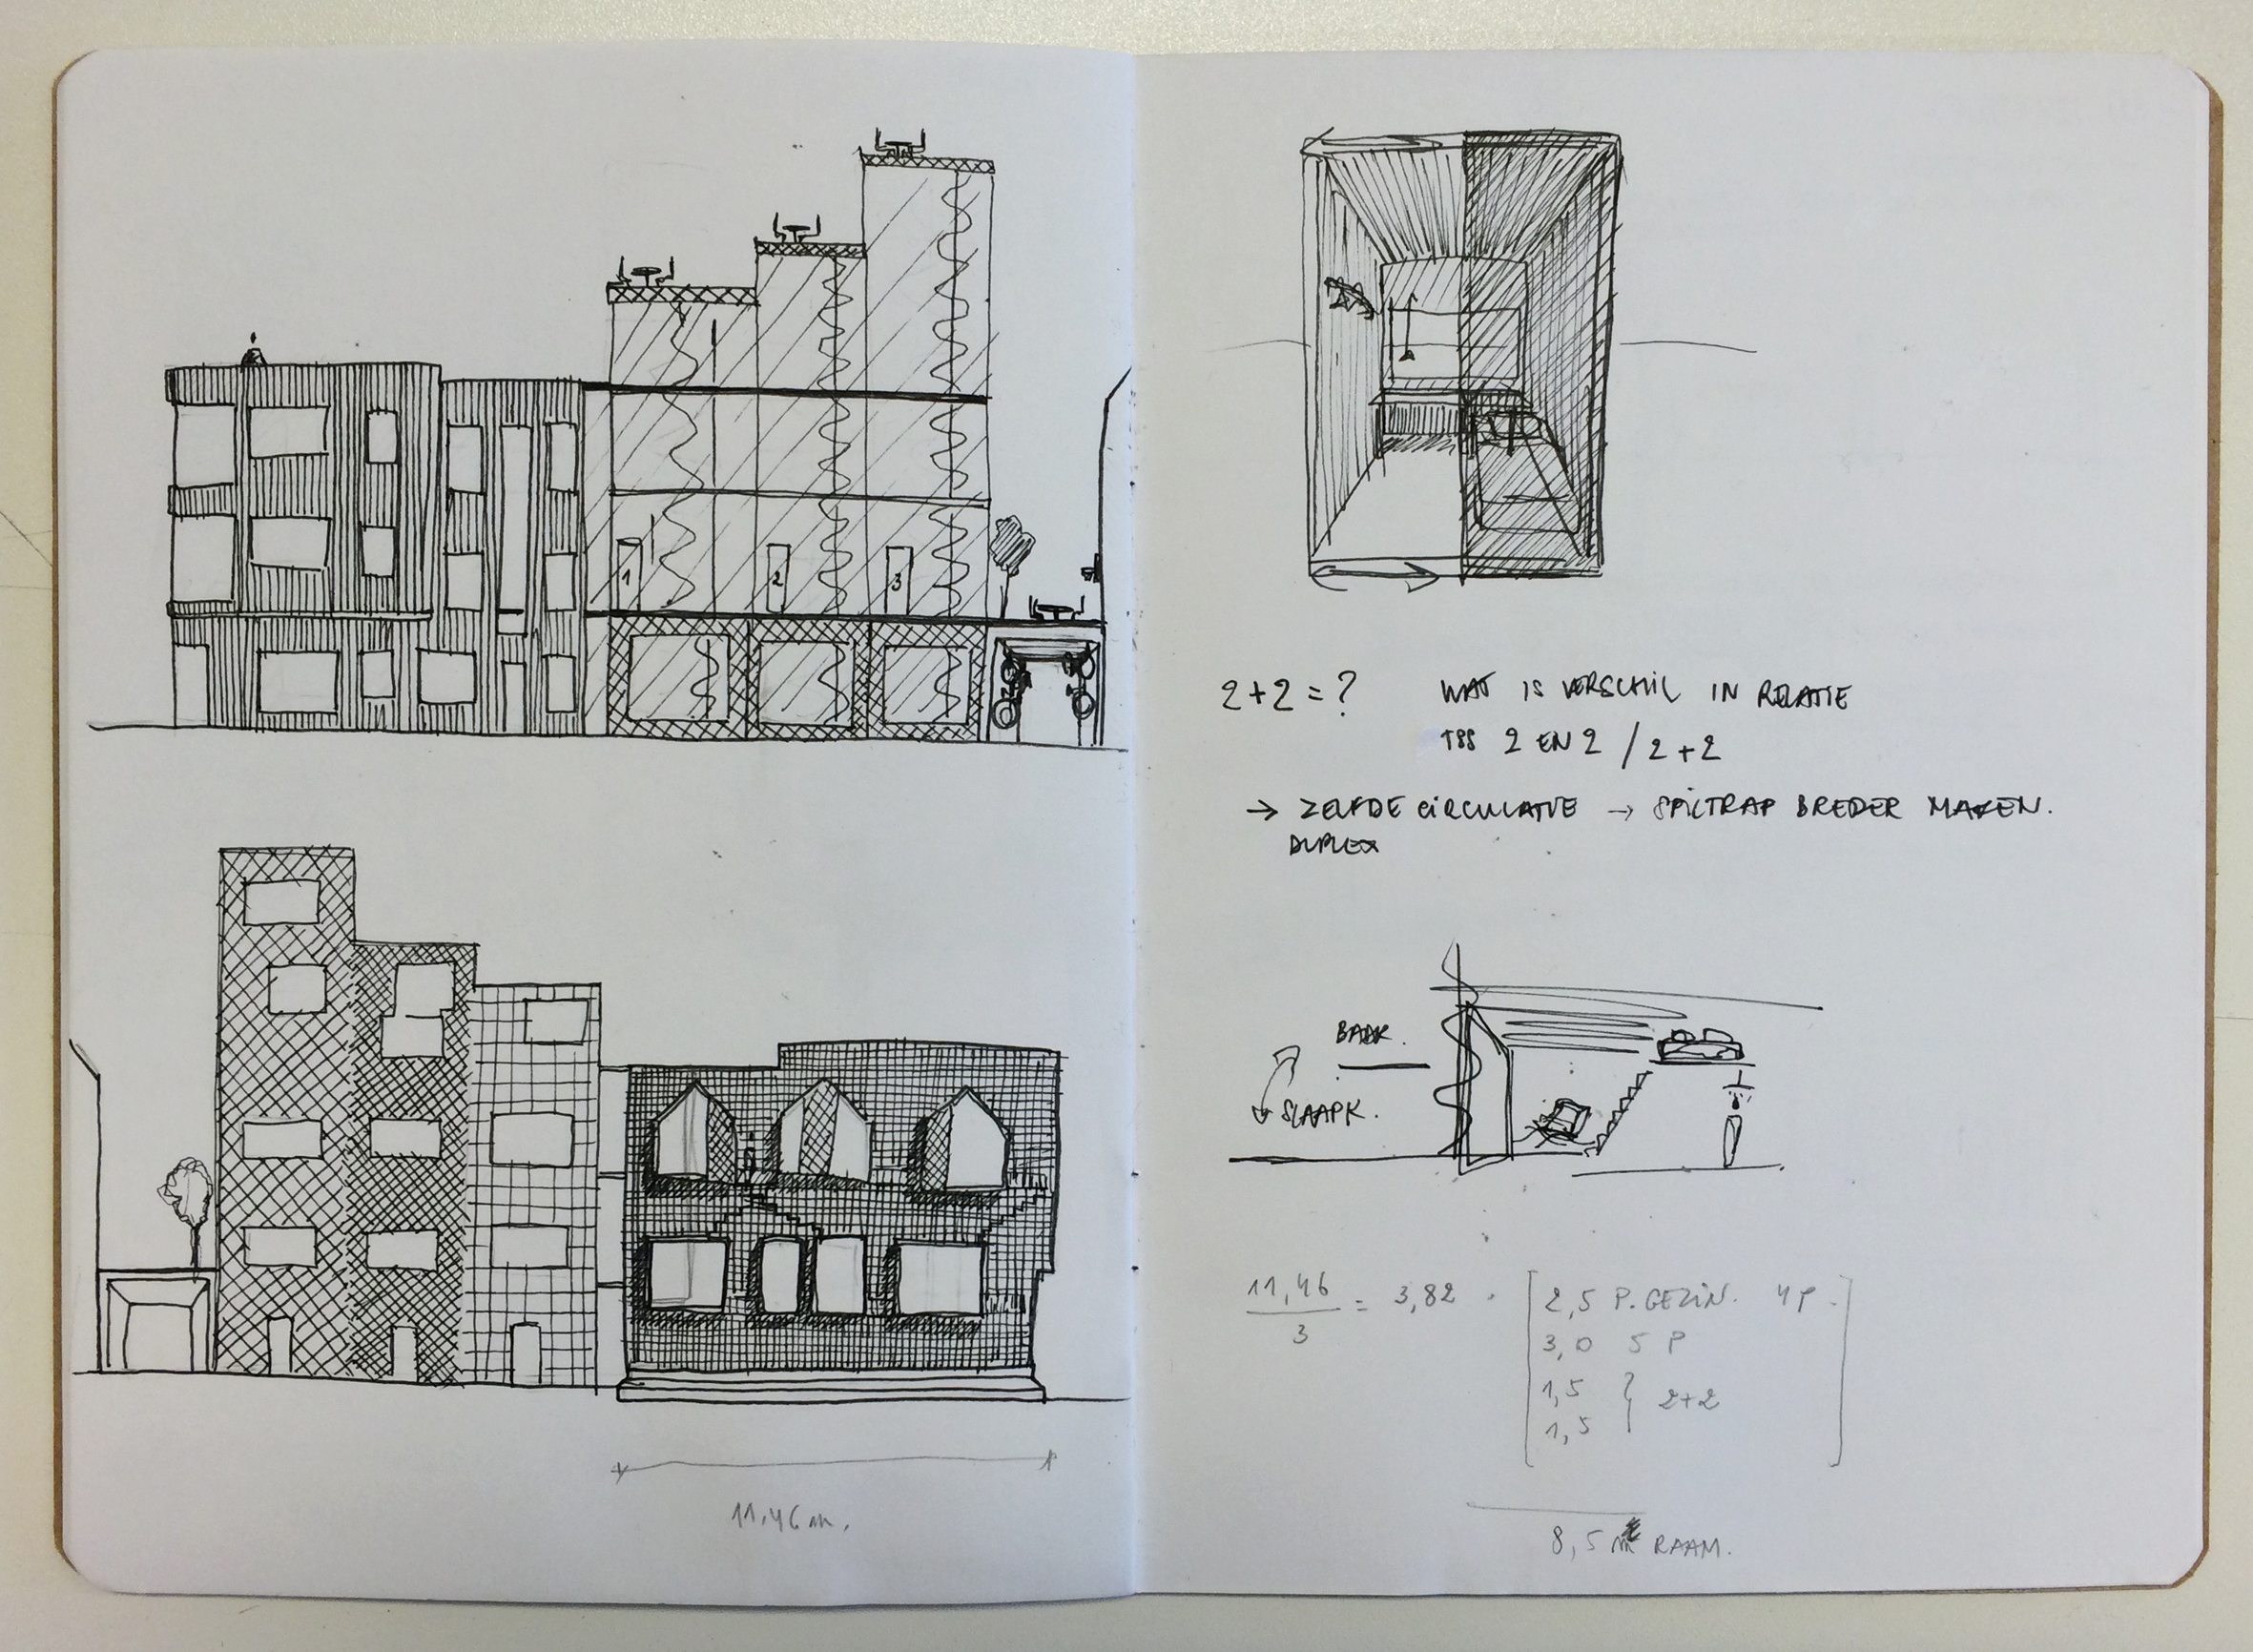 1
2
3
11,46 m.
2+2=?
WAT IS VERSCHIL IN RELATIE
TSS 2 EN 2 / 2+2
→ ZELFDE CIRCULATIE → SPILTRAP BREDER MAKEN.
DUPLEX
BADK.
SLAAPK.
11,46
3
= 3,82
2,5 P. GEZIN. 4P.
3,0 5 P
1,5
1,5
} 2+2
8,5 m RAAM.